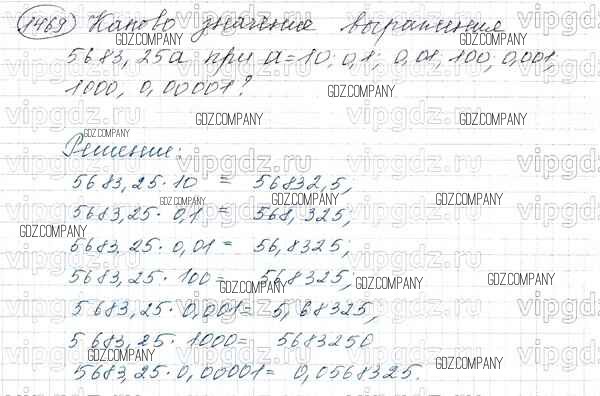 1469 Каково значение выражения
5683,25а при а=10; 0,1; 0,01; 100; 0,001;
1000; 0,00001?
Решение:
5683,25·10 = 56832,5;
5683,25·0,1 = 568,325;
5683,25·0,01 = 56,8325;
5683,25·100 = 568325;
5683,25·0,001 = 5,68325;
5683,25·1000 = 5683250
5683,25·0,00001 = 0,0568325.
GDZ.COMPANY
vipgdz.ru